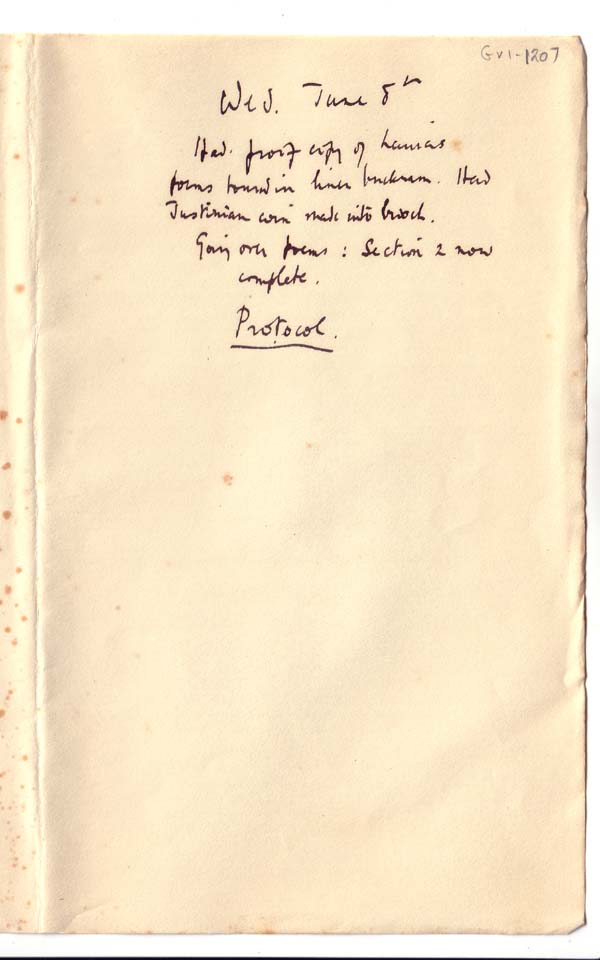 GV1-1207
Wed. June 8th
Had proof copy of Laura's
poems bound in linen buckram. Had
Justinian coin made into brooch.
Going over poems : Section 2 now
complete.
Protocol.